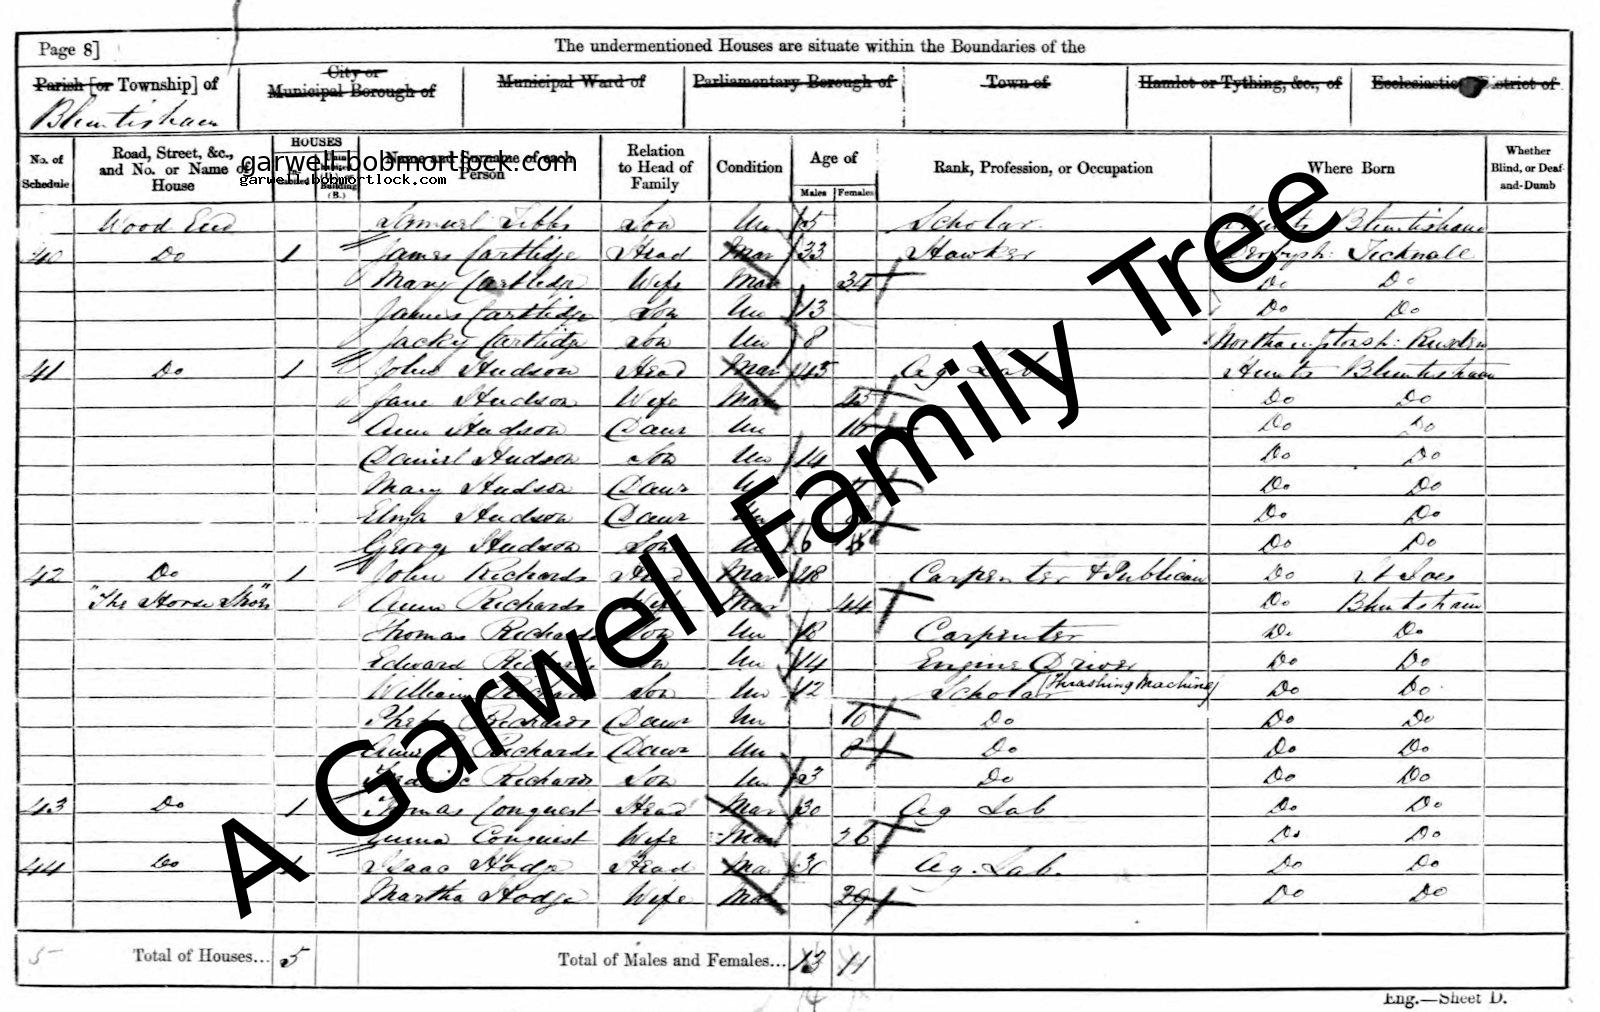 Page 8]
The undermentioned Houses are situate within the Boundaries of the
Parish [or Township] of
City or
Municipal Borough of
Municipal Ward of
Parliamentary Borough of
Town of
Hamlet or Tything, &c., of
Bluntisham
No. of Schedule
Road, Street, &c., and No. or Name of House
HOUSES
Name and Surname of each Person
Relation to Head of Family
Condition
Age of
Males
Females
Rank, Profession, or Occupation
Where Born
Whether Blind, or Deaf-and-Dumb
garwell.bobmortlock.com
garwell.bobmortlock.com
Wood End Samuel Tibbs Son Un 5 Scholar Hunts Bluntisham
40 Do 1 James Cartlidge Head Mar 33 Hawker Ticknall
Mary Cartlidge Wife Mar 34 Do Do
James Cartlidge Son Un 13 Do Do
Cartlidge Son Un 8 Northamptonsh: Rusden
41 Do 1 John Hudson Head Mar 45 Ag Lab Hunts Bluntisham
Jane Hudson Wife Mar Do Do
Ann Hudson Daur Un 16 Do Do
Daniel Hudson Son Un 14 Do Do
Mary Hudson Daur Do Do
Hudson Daur Un Do Do
George Hudson Son Un 6 Do Do
42 Do 1 John Richards Head Mar 48 Carpenter & Publican Do St Ives
"The Horse Shoes" Ann Richards Wife Mar 44 Do Bluntisham
Thomas Richards Son Un 18 Carpenter Do Do
Edward Richards Son Un 14 Engine Driver Do Do
William Richards Son Un 12 Scholar (Thrashing Machine) Do Do
Richards Daur Un 10 Do Do Do
Richards Daur Un 8 Do Do Do
Richards Son Un 3 Do Do Do
43 Do 1 Thomas Conquest Head Mar 30 Ag Lab Do Do
Emma Conquest Wife Mar 26 Do Do
44 Do 1 Isaac Hodge Head Mar 30 Ag. Lab. Do Do
Martha Hodge Wife Mar 29 Do Do
5 Total of Houses... 5
Total of Males and Females... 13 11
14
Eng.—Sheet D.
A Garwell Family Tree